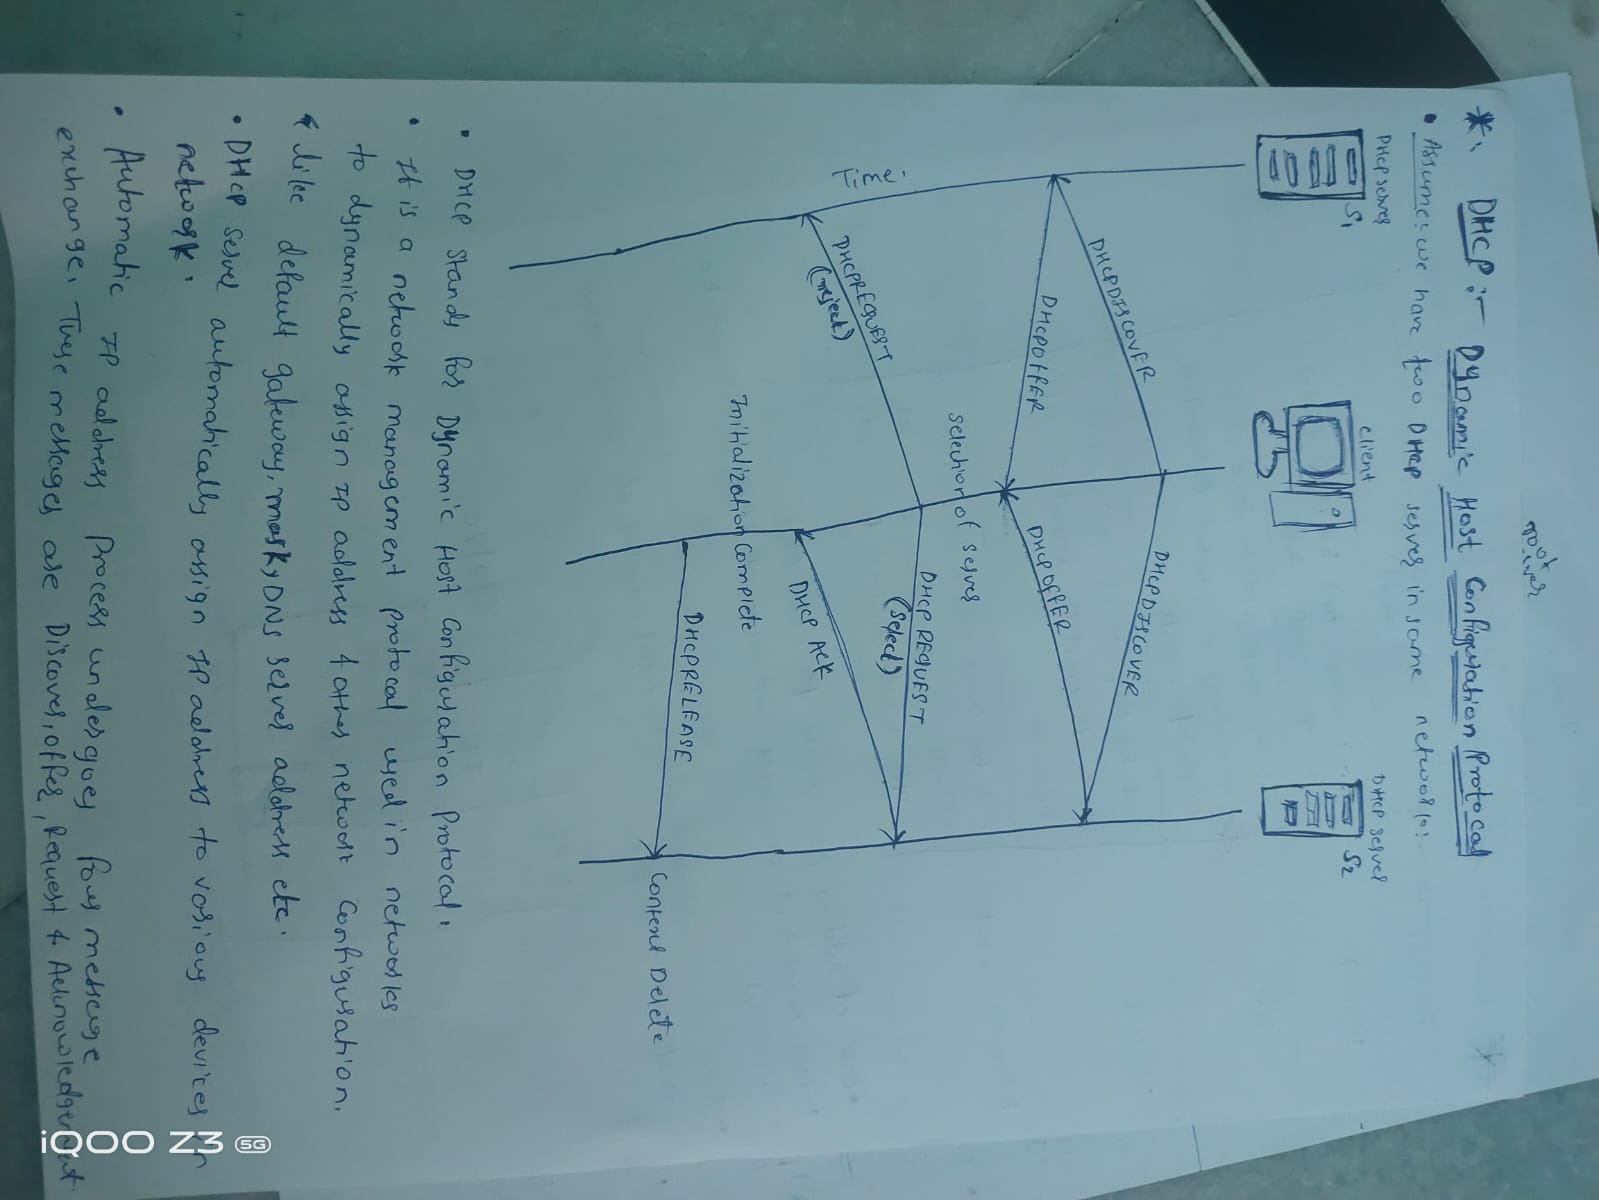 root
*. DHCP :- Dynamic Host Configuration Protocal
• Assume: we have two DHCP server in same network:
DHCP server
S1
client
DHCP server
S2
DHCPDISCOVER
DHCPDISCOVER
DHCPOFFER
DHCPOFFER
Selection of server
DHCP REQUEST
(select)
DHCPREQUEST
(reject)
Time.
DHCP ACK
Initialization Complete
DHCPRELEASE
Delete
• DHCP stands for Dynamic Host Configuration Protocal.
• It is a network management protocal used in networks
to dynamically assign IP address & other network Configuration.
like default gateway, mask, DNS server address etc.
• DHCP server automatically assign IP address to various devices in
network.
• Automatic IP address Process undergoes four message
exchange. These messages are Discover, offer, Request & Acknowledgement.
iQOO Z3 5G